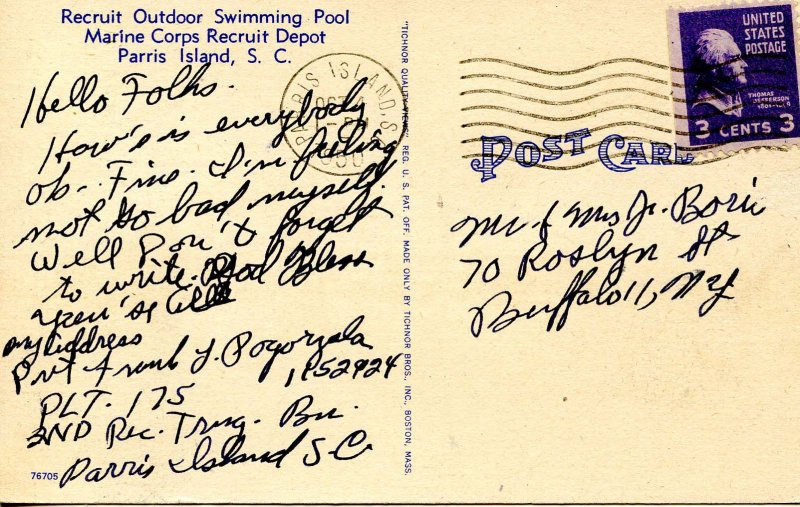 Recruit Outdoor Swimming Pool
Marine Corps Recruit Depot
Parris Island, S. C.
Hello Folks.
How's is everybody
ok.. Fine. I'm feeling
not so bad myself.
Well Don't forget
to write. God Bless
you's all
my address
Pvt Frank J. Pogorzala
1152924
PLT. 175
2ND Rec. Trng. Bn.
Parris Island S.C
76705
"TICHNOR QUALITY VIEWS" REG. U. S. PAT. OFF. MADE ONLY BY TICHNOR BROS., INC., BOSTON, MASS.
PARRIS ISLAND, S.
UNITED
STATES
POSTAGE
THOMAS
JEFFERSON
3 CENTS 3
POST CARD
Mr & Mrs Jr. Borii
70 Roslyn St
Buffalo 11, NY